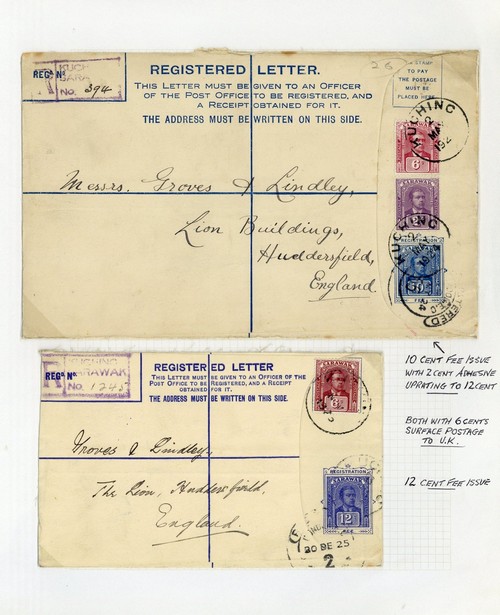 26
A STAMP
TO PAY
THE POSTAGE
MUST BE
PLACED HERE.
R
KUCHING
SARA
REGD. No.
No. 394
REGISTERED LETTER.
THIS LETTER MUST BE GIVEN TO AN OFFICER
OF THE POST OFFICE TO BE REGISTERED, AND
A RECEIPT OBTAINED FOR IT.
THE ADDRESS MUST BE WRITTEN ON THIS SIDE.
KUCHING
2
MA
192
6
SARAWAK
2
KUCHING
REGISTRATION
10
FEE
Messrs. Groves & Lindley,
Lion Buildings,
Huddersfield,
England.
10 CENT FEE ISSUE
WITH 2 CENT ADHESIVE
UPRATING TO 12 CENT
BOTH WITH 6 CENTS
SURFACE POSTAGE
TO U.K.
12 CENT FEE ISSUE
R
KUCHING
SARAWAK
REGD. No.
No. 1245
REGISTERED LETTER
THIS LETTER MUST BE GIVEN TO AN OFFICER OF THE
POST OFFICE TO BE REGISTERED, AND A RECEIPT
OBTAINED FOR IT.
THE ADDRESS MUST BE WRITTEN ON THIS SIDE.
SARAWAK
6
Groves & Lindley,
The Lion, Huddersfield,
England.
REGISTRATION
SARAWAK
12
FEE
20 DE 25
2